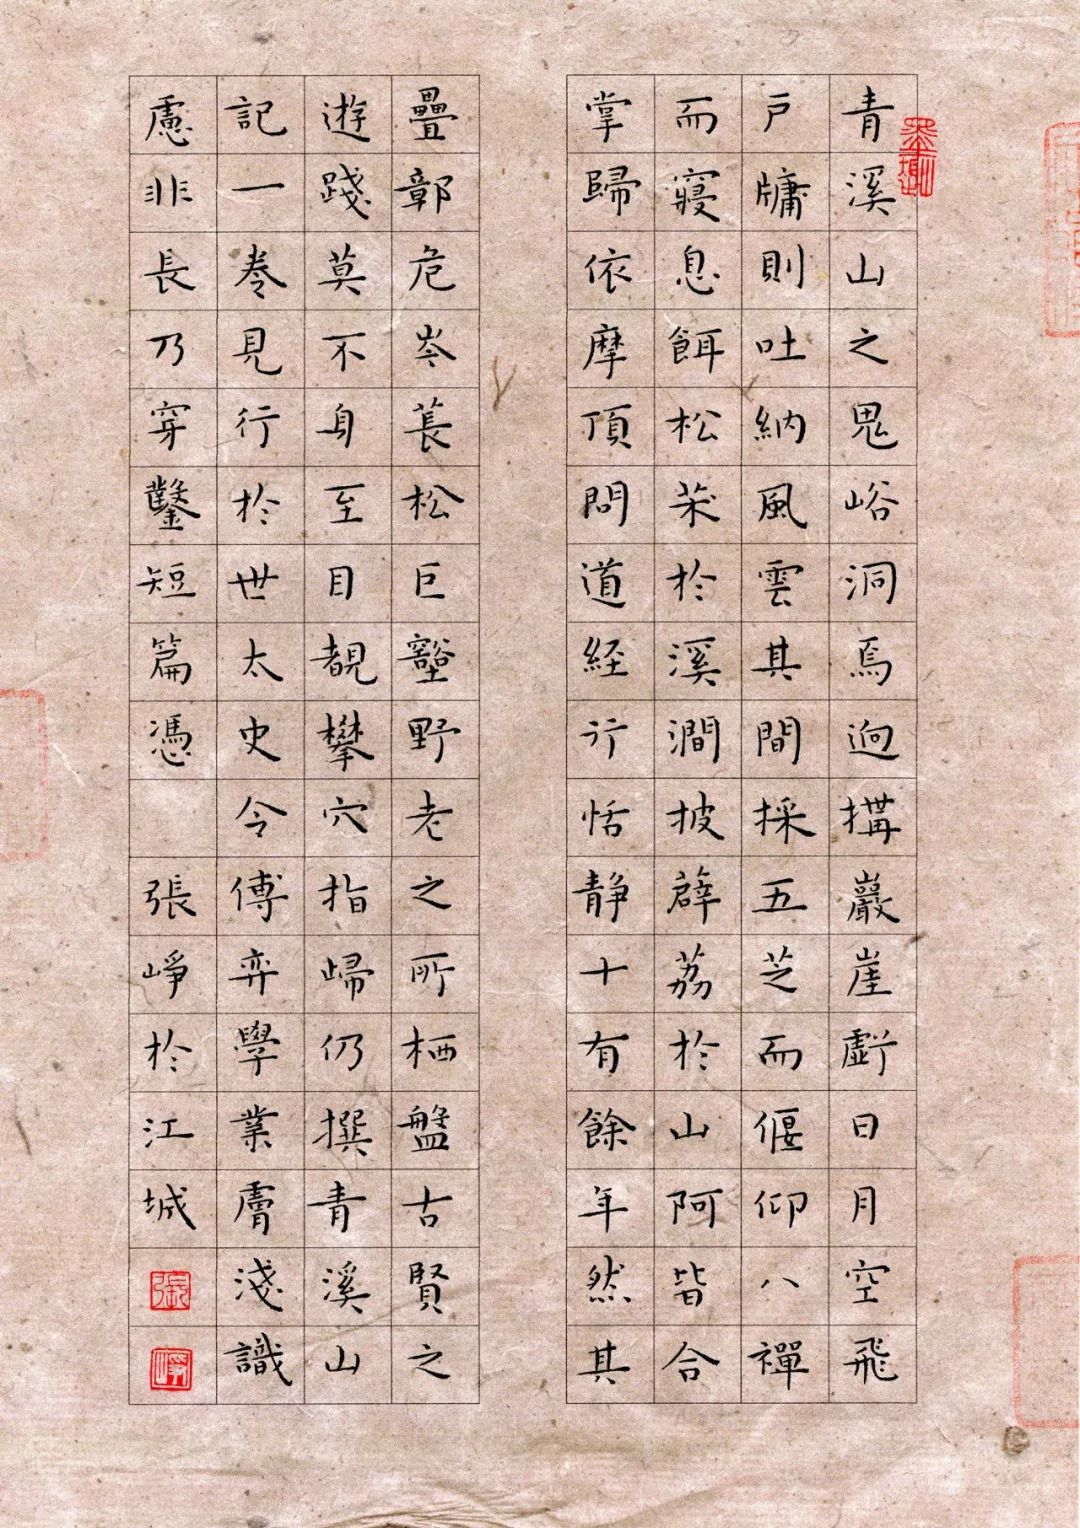 青溪山之鬼峪洞焉逈搆巖崖虧日月空飛
戶牗則吐納風雲其間採五芝而偃仰八禪
而寢息餌松茱於溪澗披薜荔於山阿皆合
掌歸依摩頂問道経行恬静十有餘年然其
疊鄣危岑萇松巨壑野老之所栖盤古賢之
遊踐莫不身至目覩攀穴指歸仍撰青溪山
記一卷見行於世太史令傅弈學業膚淺識
慮非長乃穿鑿短篇憑
張崢於江城
張
崢